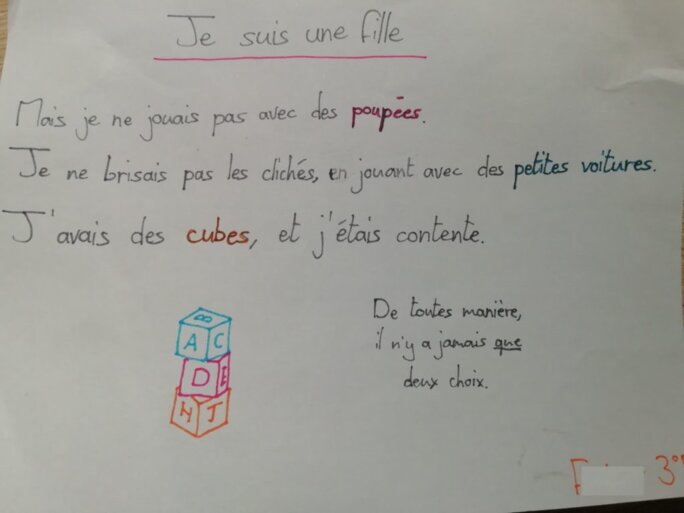 Je suis une fille
Mais je ne jouais pas avec des poupées.
Je ne brisais pas les clichés, en jouant avec des petites voitures.
J'avais des cubes, et j'étais contente.
De toutes manière,
il n'y a jamais que
deux choix.
B
A C
D E
H J
3°